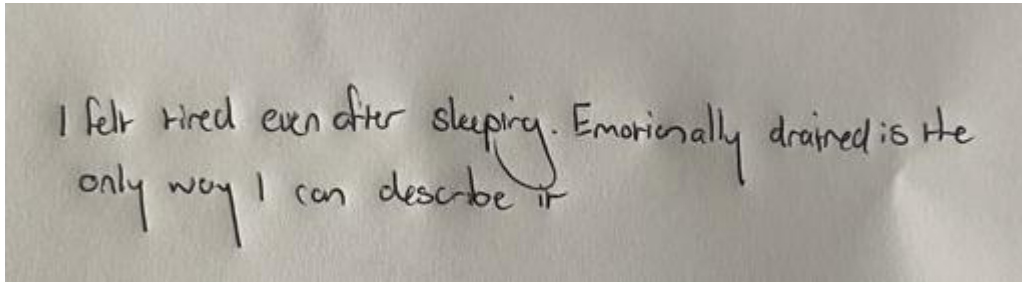 I felt tired even after sleeping. Emotionally drained is the
only way I can describe it